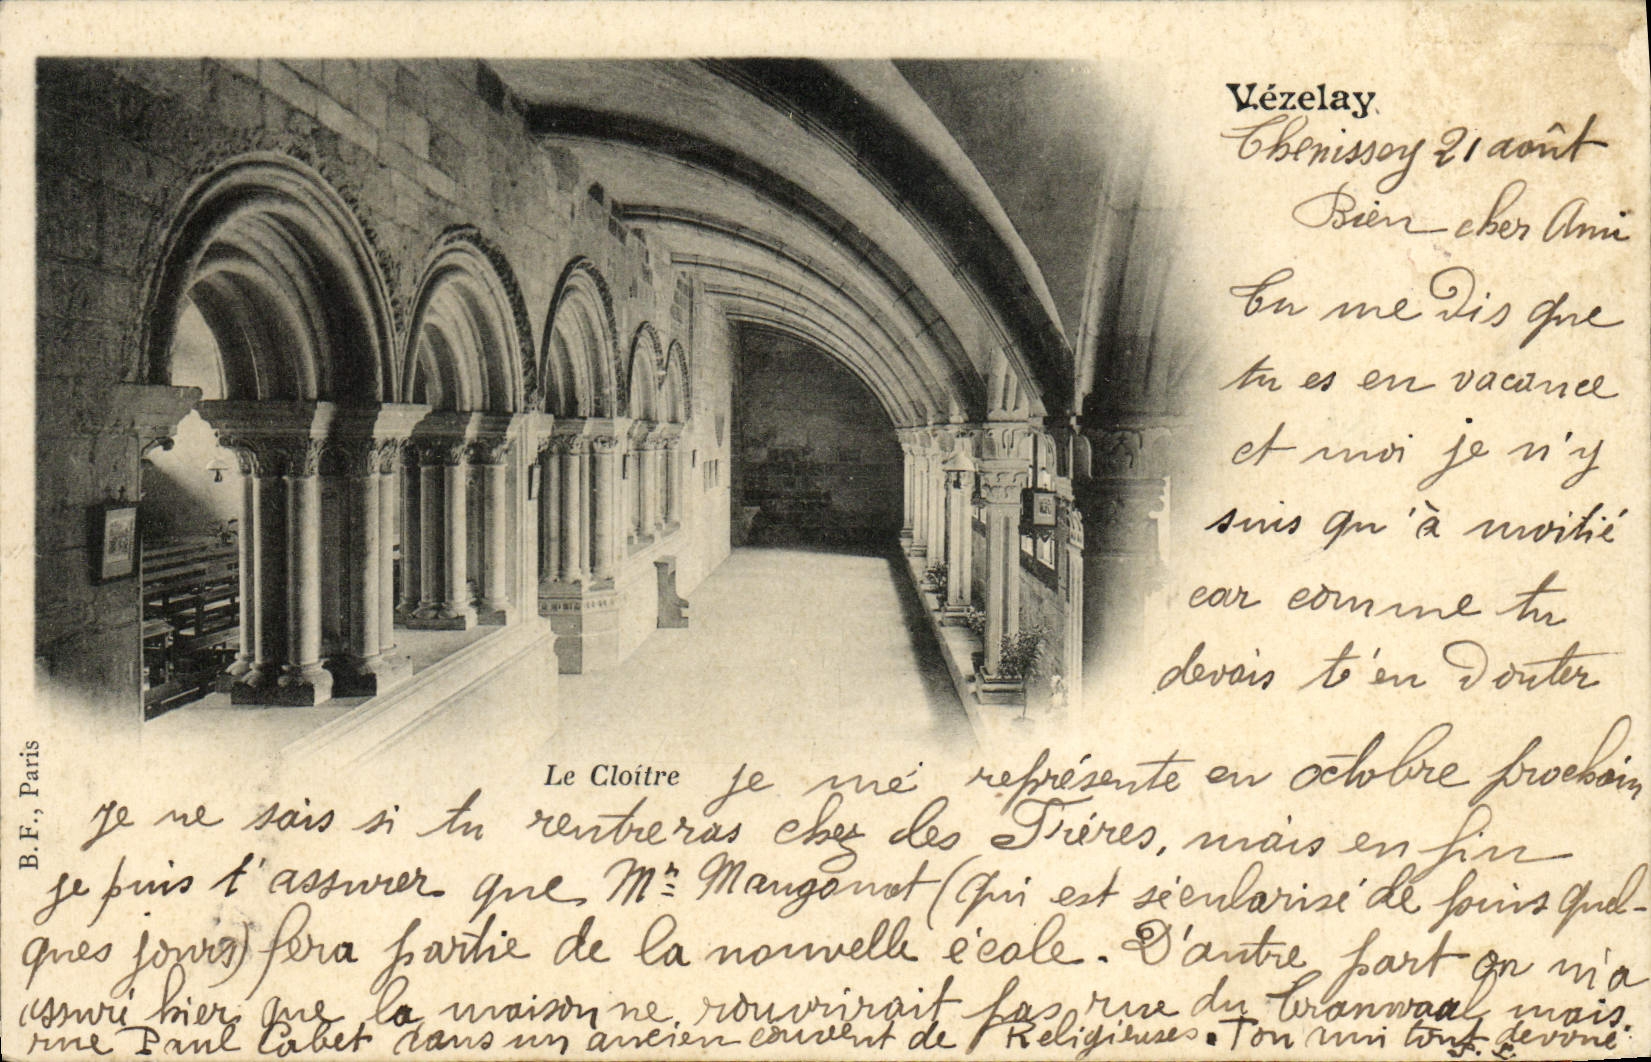 Vézelay
Chenissey 21 août
Bien cher Ami
Tu me dis que
tu es en vacance
et moi je n'y
suis qu'à moitié
car comme tu
devais t'en douter
Le Cloître
je me représente en octobre prochain
je ne sais si tu rentreras chez les Frères, mais en fin
je puis t'assurer que Mr (qui est sécularisé depuis quel-
ques jours) fera partie de la nouvelle école. D'autre part on m'a
assuré hier que la maison ne rouvrirait pas rue du mais
rue Paul Cabet dans un ancien couvent de Religieuses. Ton tout dévoué
B. F., Paris